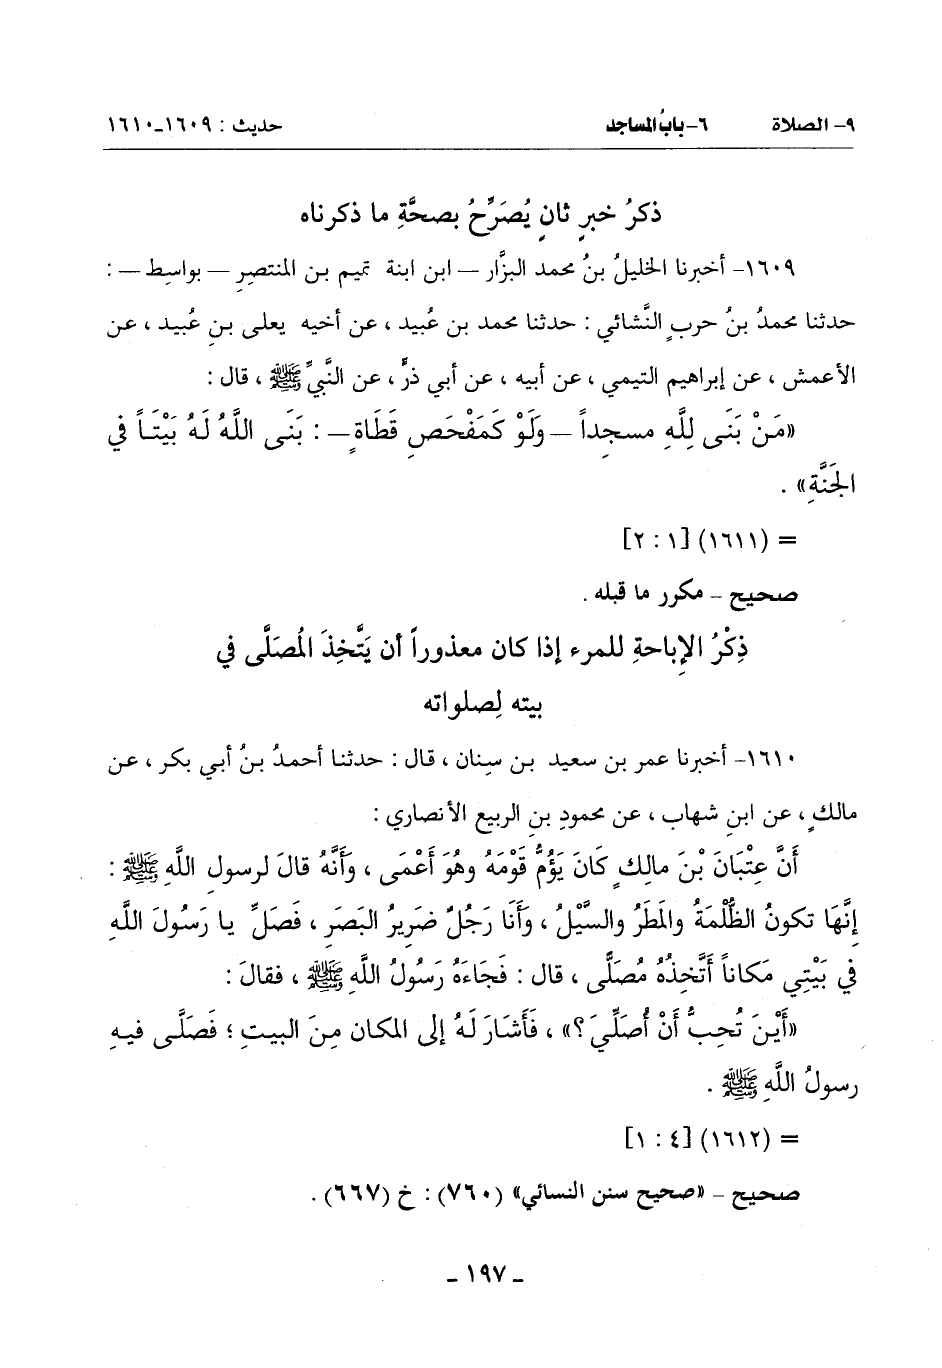 ٩- الصلاة ٦- بابُ المساجد حديث : ١٦٠٩-١٦١٠
ذكرُ خبرٍ ثانٍ يُصَرِّحُ بصحَّةِ ما ذكرناه
١٦٠٩- أخبرنا الخليلُ بنُ محمد البزَّار – ابن ابنة تميم بن المنتصِرِ – بواسِط – :
حدثنا محمدُ بنُ حربٍ النَّشائي : حدثنا محمد بن عُبيد ، عن أخيه يعلى بنِ عُبيد ، عن
الأعمش ، عن إبراهيم التيمي ، عن أبيه ، عن أبي ذرٍّ ، عن النَّبيِّ ﷺ ، قال :
«مَنْ بَنَى لِلَّهِ مسجداً – ولَوْ كَمَفْحَصِ قَطَاةٍ – : بَنَى اللَّهُ لَهُ بَيْتَاً في
الجَنَّةِ» .
= (١٦١١) [١ : ٢]
صحيح – مكرر ما قبله .
ذِكْرُ الإِباحةِ للمرء إذا كان معذوراً أن يَتَّخِذَ المُصَلَّى في
بيته لِصلواته
١٦١٠- أخبرنا عمر بن سعيد بن سِنان ، قال : حدثنا أحمدُ بنُ أبي بكر ، عن
مالكٍ ، عن ابنِ شهاب ، عن محمودِ بنِ الربيع الأنصاري :
أَنَّ عِتْبَانَ بْنَ مالِكٍ كَانَ يَؤُمُّ قَوْمَهُ وهُوَ أَعْمَى ، وَأَنَّهُ قالَ لرسولِ اللَّهِ ﷺ :
إِنَّهَا تكونُ الظُّلْمَةُ والمَطَرُ والسَّيْلُ ، وَأَنَا رَجُلٌ ضَرِيرُ البَصَرِ ، فَصَلِّ يا رَسُولَ اللَّهِ
في بَيْتِي مَكاناً أَتَّخِذُهُ مُصَلَّى ، قال : فَجَاءَهُ رَسُولُ اللَّهِ ﷺ ، فقالَ :
«أَيْنَ تُحِبُّ أَنْ أُصَلِّيَ ؟» ، فَأَشَارَ لَهُ إلى المكان مِنَ البيتِ ؛ فَصَلَّى فيهِ
رسولُ اللَّهِ ﷺ .
= (١٦١٢) [٤ : ١]
صحيح – «صحيح سنن النسائي» (٧٦٠) : خ (٦٦٧) .
- ١٩٧ -